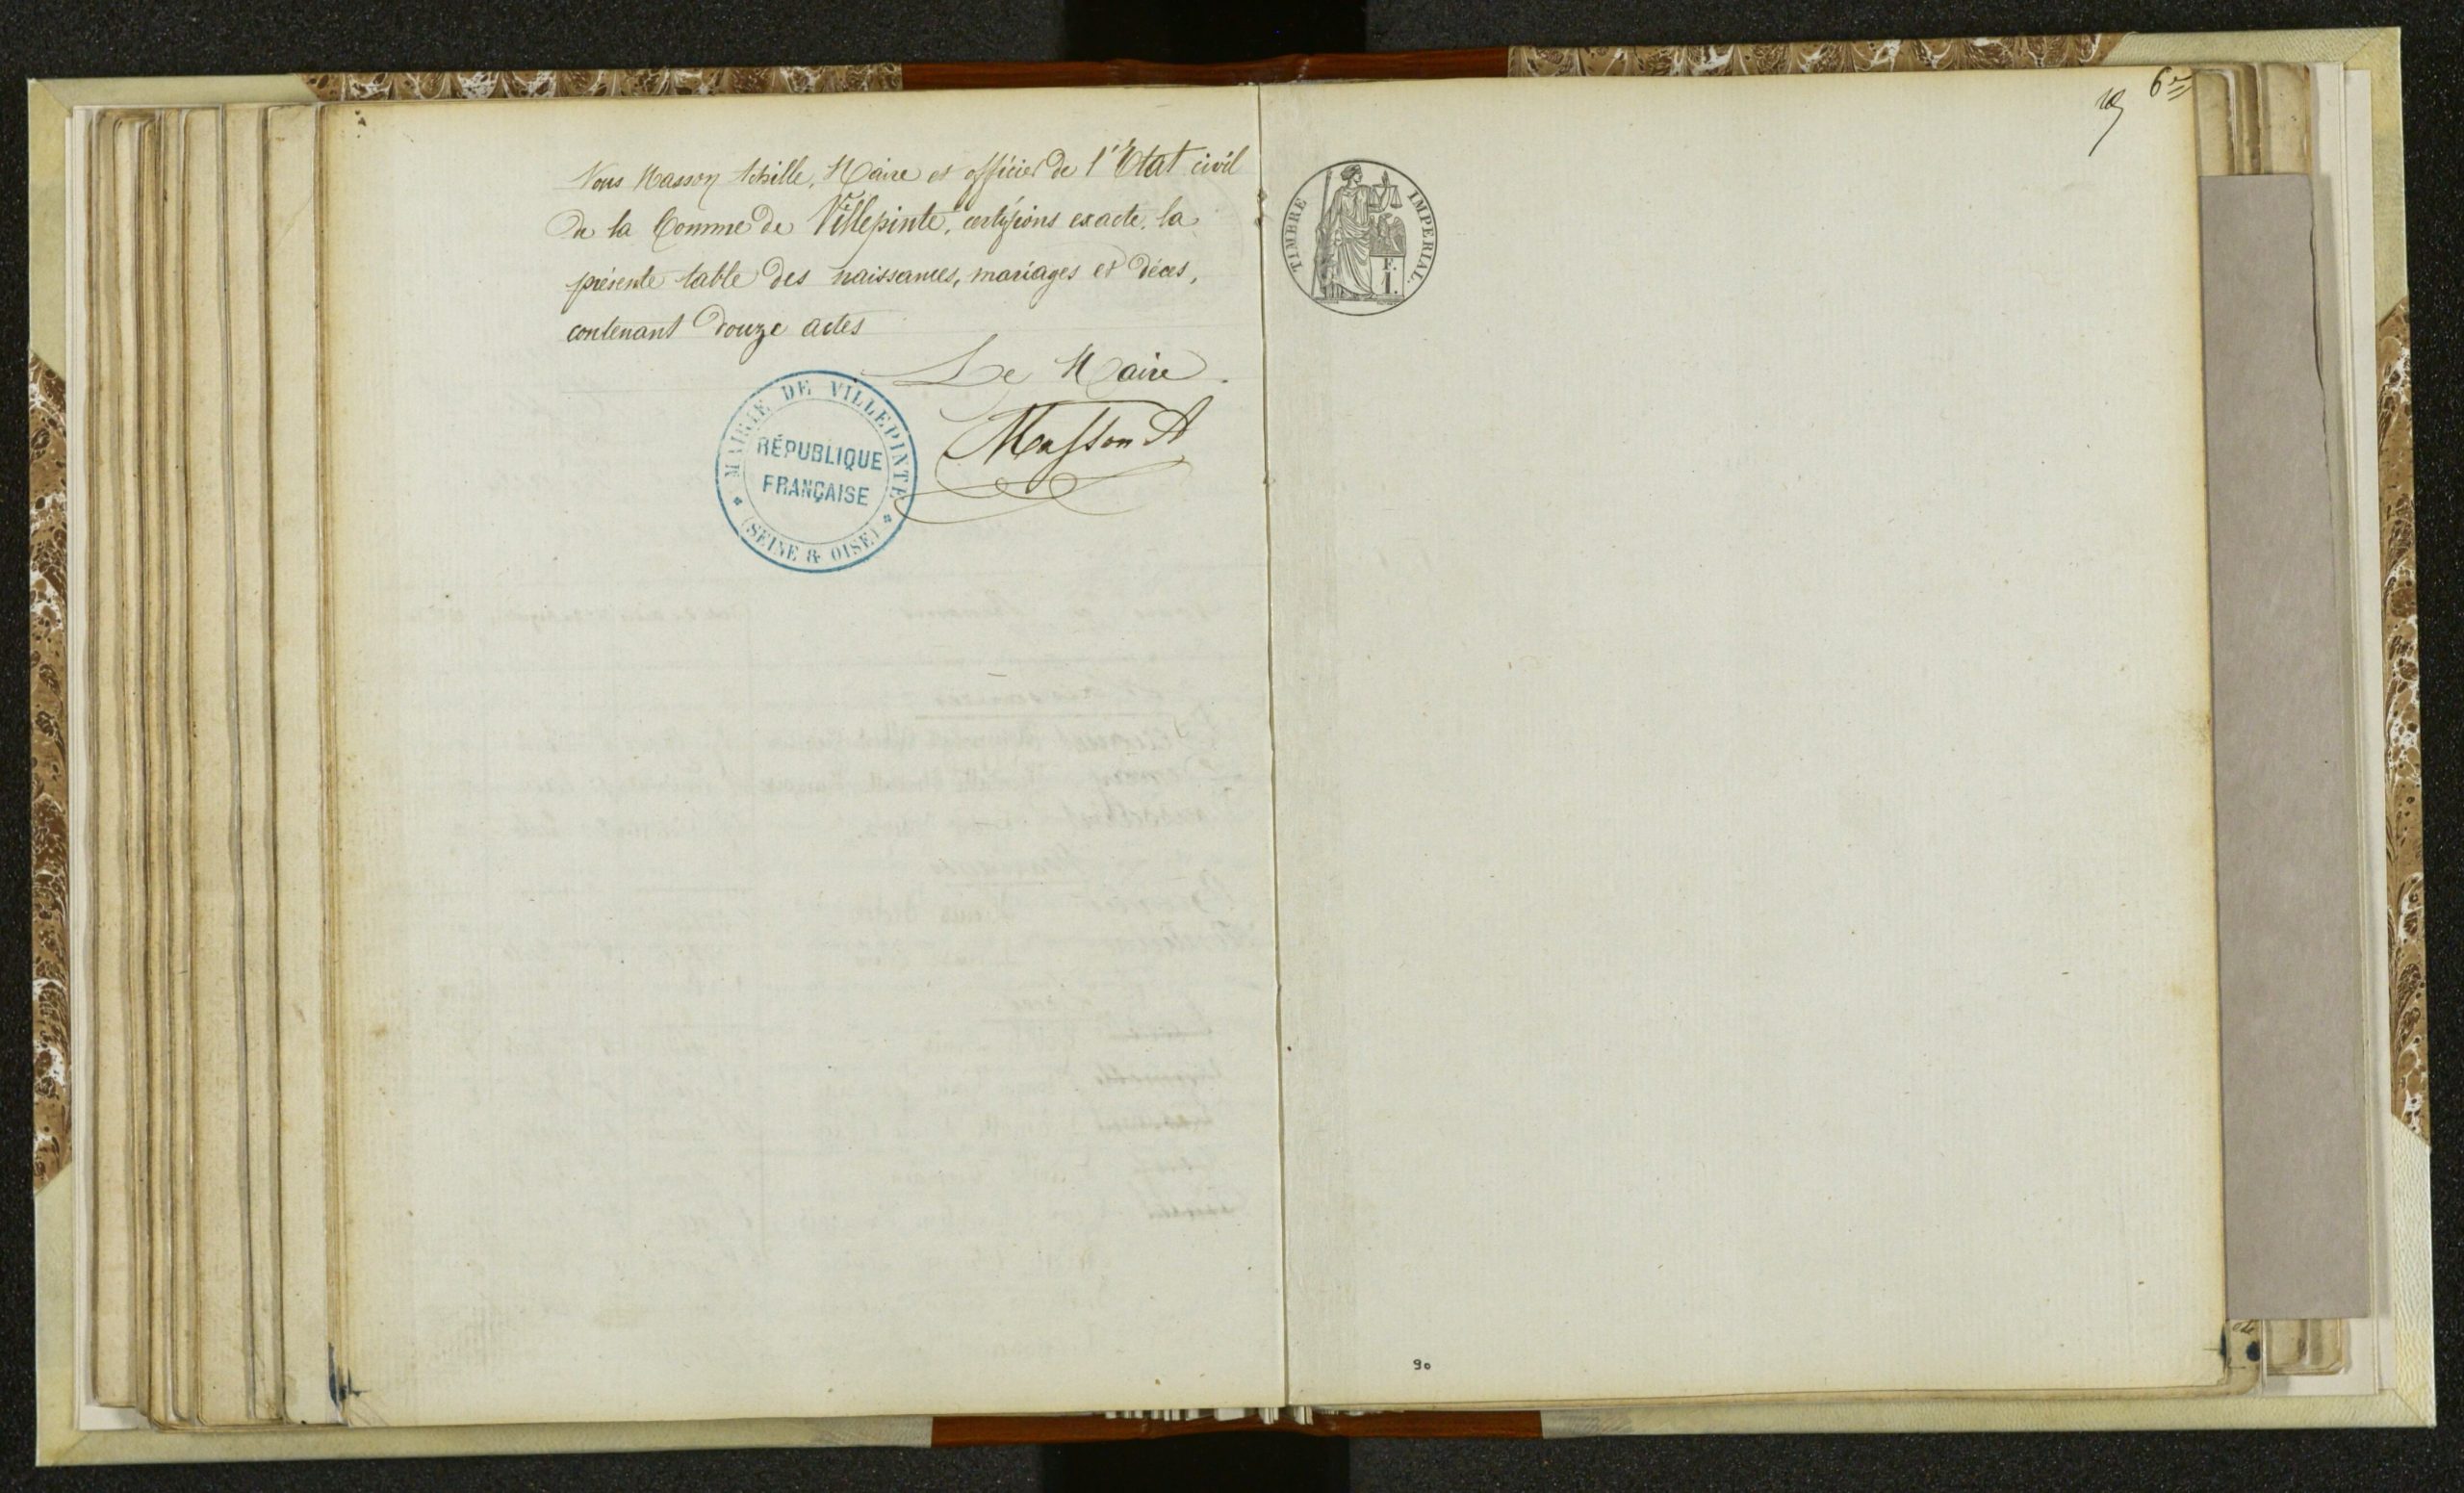 Nous Masson Achille, Maire et officier de l'Etat civil
de la Comme de Villepinte, certifions exacte, la
présente table des naissances, mariages et décès,
contenant douze actes
Le Maire.
Masson A
MAIRIE DE VILLEPINTE
RÉPUBLIQUE
FRANÇAISE
(SEINE & OISE)
6e
TIMBRE IMPERIAL.
F.
1.
90